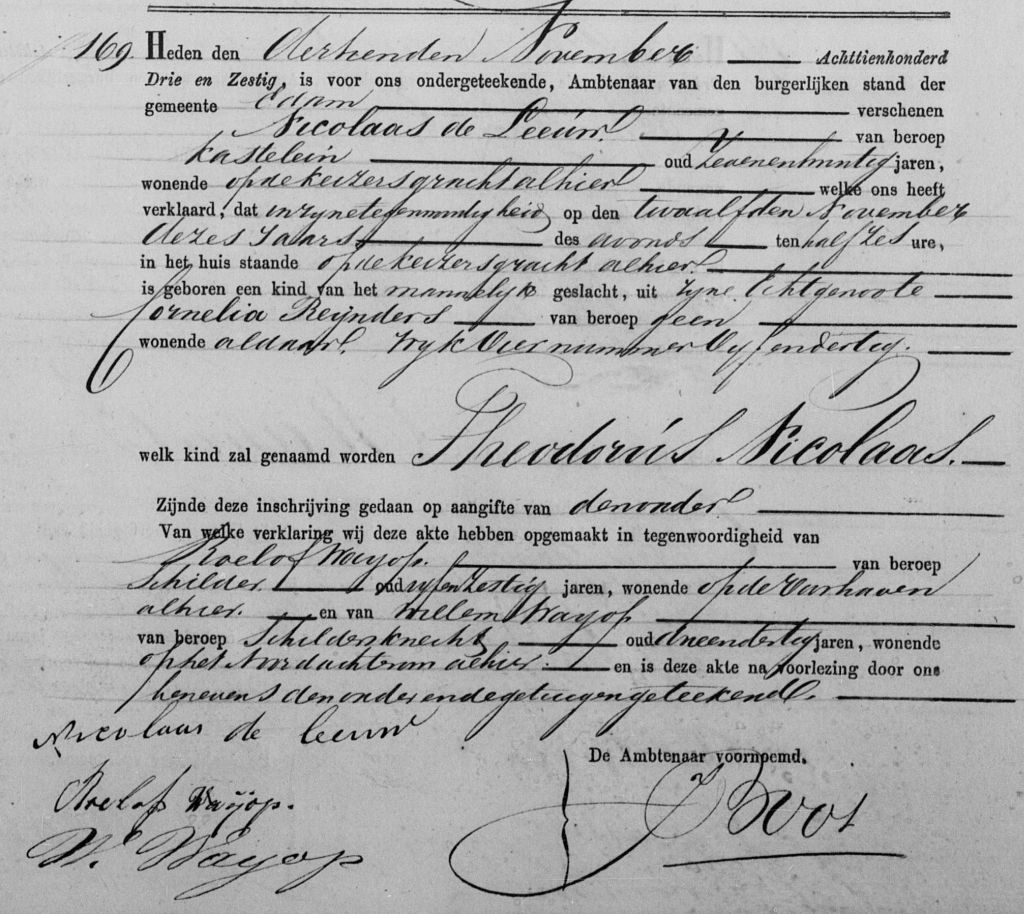 169. Heden den Derhenden November Achttienhonderd
Drie en Zestig, is voor ons ondergeteekende, Ambtenaar van den burgerlijken stand der
gemeente Edam verschenen
Nicolaas de Leeuw van beroep
kastelein oud Zevenentwintig jaren,
wonende op de keizersgracht alhier welke ons heeft
verklaard, dat in zyne tegenwoordigheid op den twaalfden November
dezes Jaars des avonds ten half zes ure,
in het huis staande op de keizersgracht alhier.
is geboren een kind van het mannelyk geslacht, uit zyne Echtgenoote
Cornelia Reijnders van beroep geen
wonende aldaar. Wyk Vier nummer Vyf en dertig.
welk kind zal genaamd worden Theodorus Nicolaas.
Zijnde deze inschrijving gedaan op aangifte van den vader
Van welke verklaring wij deze akte hebben opgemaakt in tegenwoordigheid van
Roelof Wayop. van beroep
Schilder. oud vyf en zestig jaren, wonende op de Voorhaven
alhier. en van Willem Wayop
van beroep Schildersknecht oud drieendertig jaren, wonende
op het Noordachterom alhier. en is deze akte na voorlezing door ons
benevens den vader en de getuigen geteekend.
Nicolaas de Leeuw
De Ambtenaar voornoemd.
Roelof Wayop.
W. Wayop